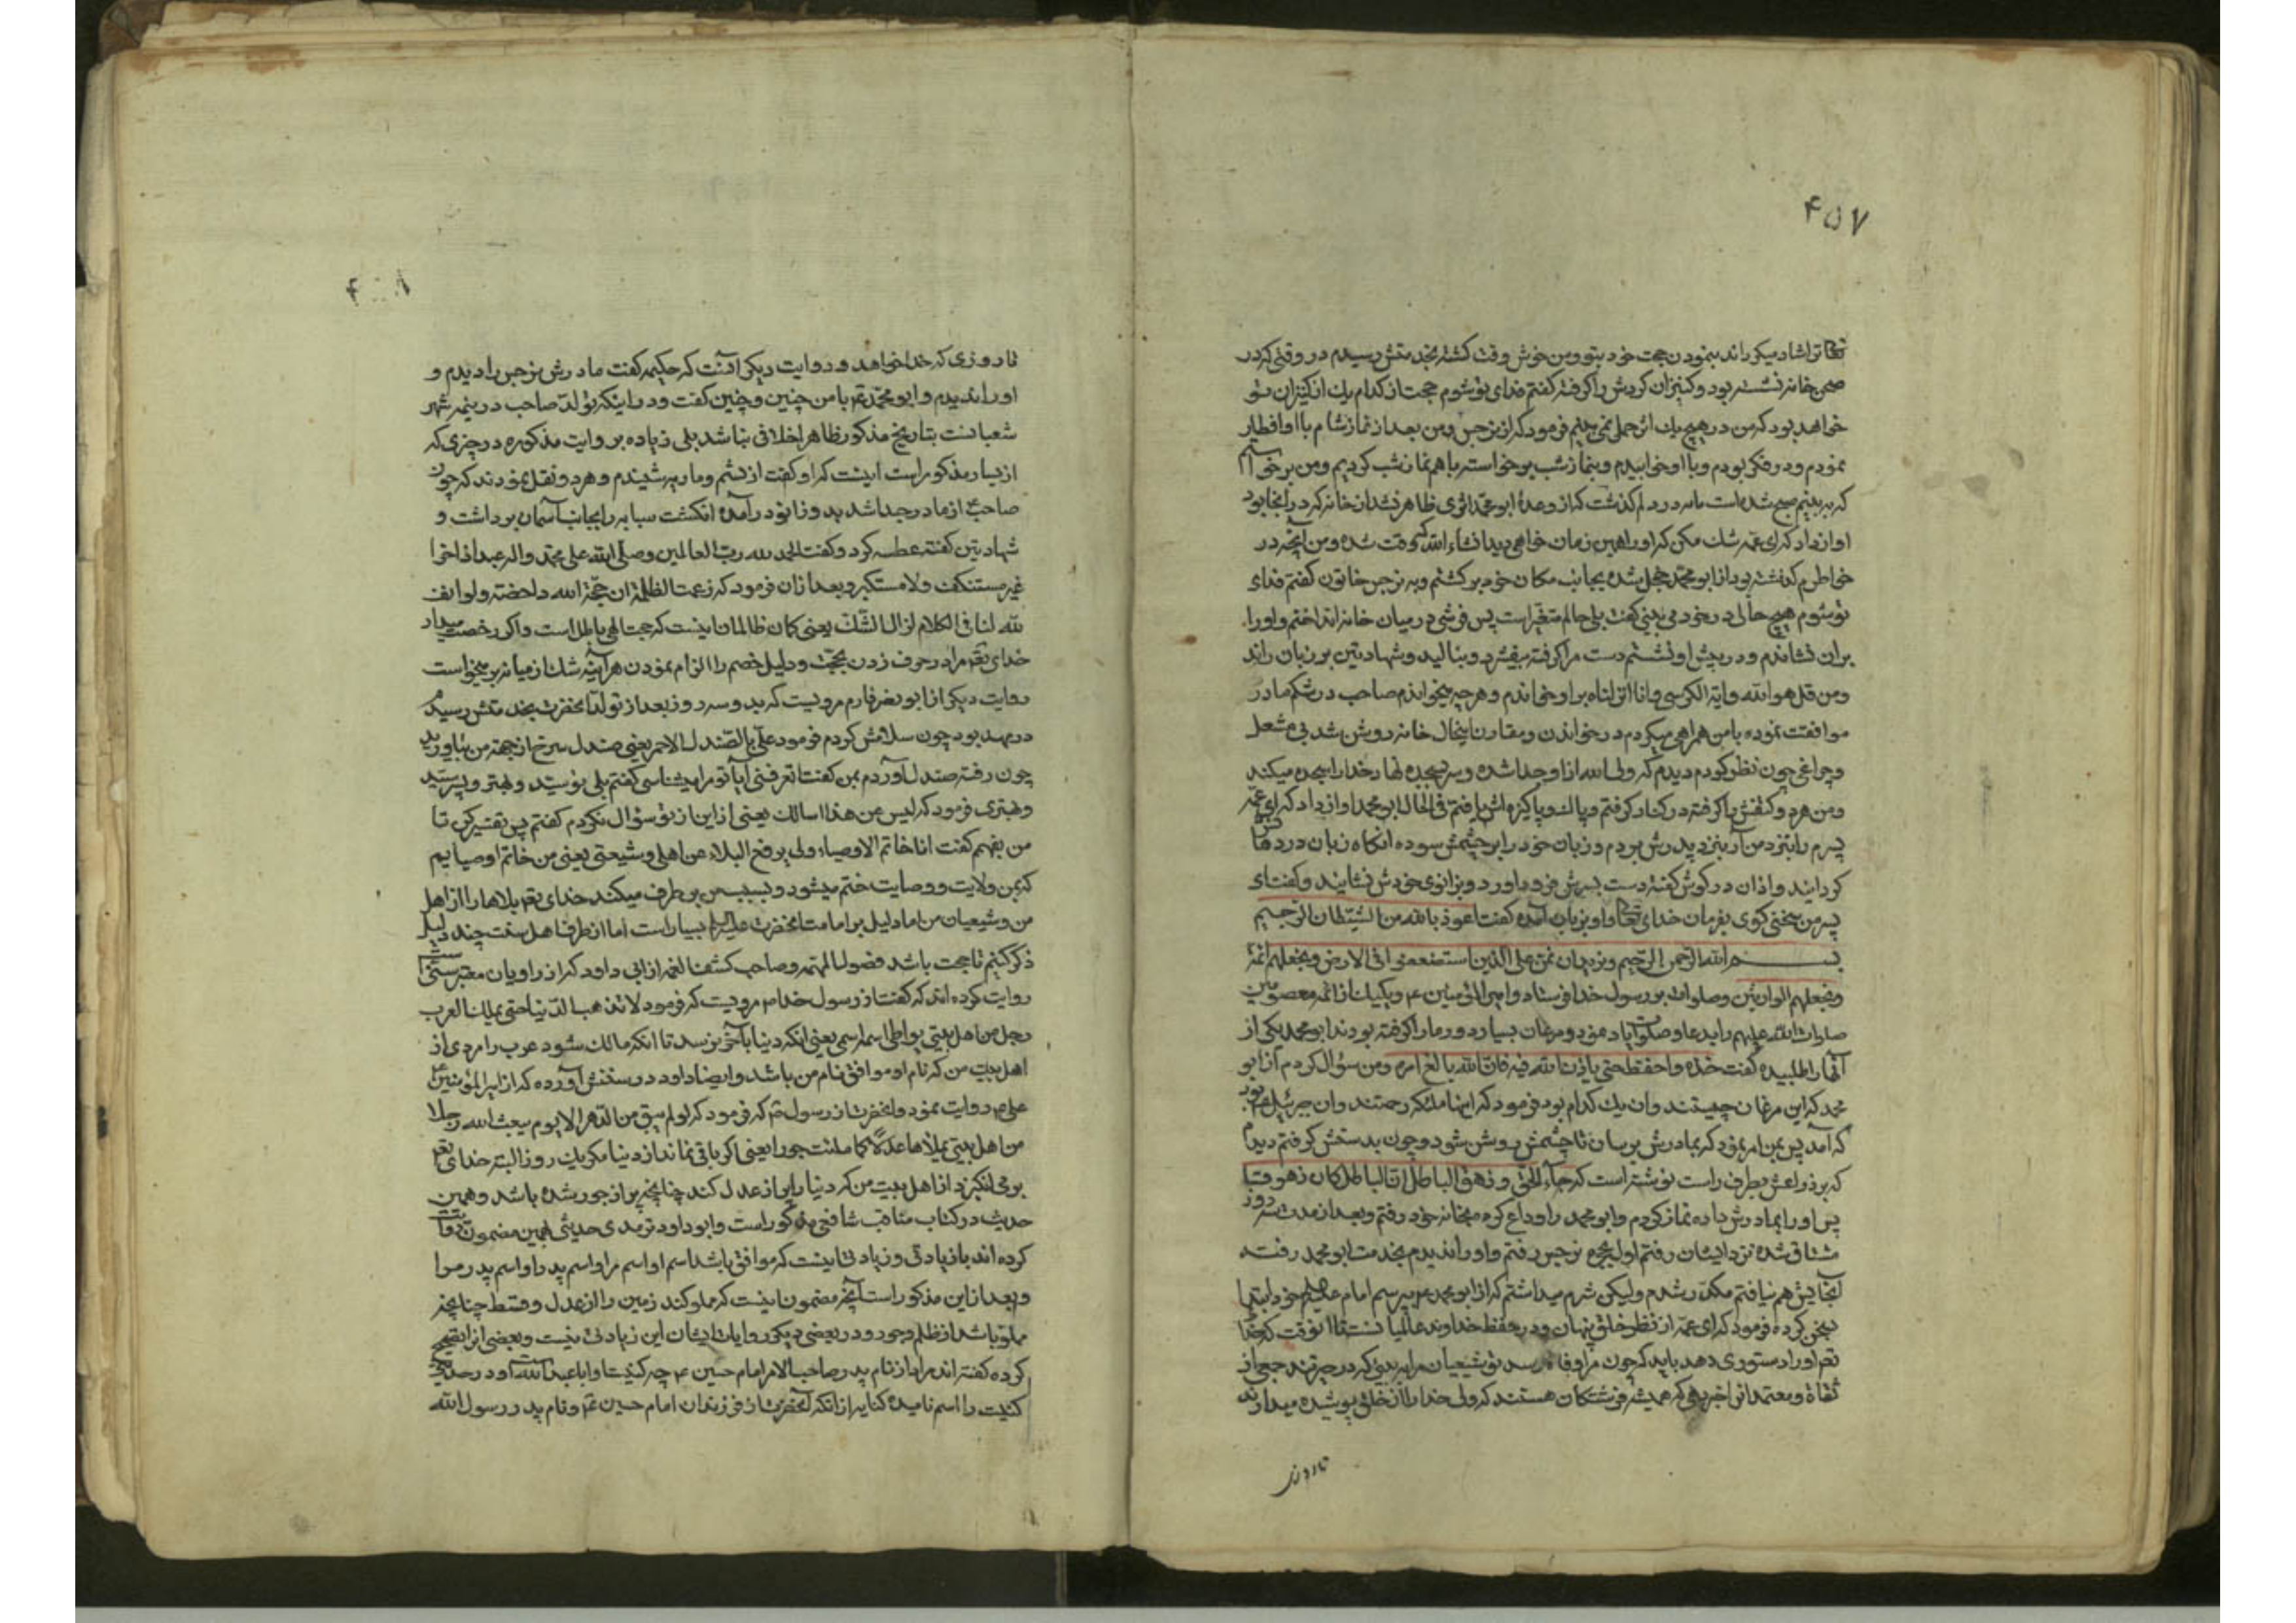 ۴۵۷
تعالی ترا شاد میکرداند بنمودن حجت خود بتو و من خوش وقت کشته بخدمتش رسیدم در وقتی که در
صحن خانه نشسته بود و کنیزان کردش را کرفته کفتم فدای تو شوم حجت از کدام یک از کنیزان تو
خواهد بود که من در هیچ یک اثر حمل نمی بینم فرمود که از نرجس و من بعد از نماز شام با او افطار
نمودم و در فکر بودم و با او خوابیدم و بنماز شب برخواسته با هم نماز شب کردیم و من برخواستم
که به بینم صبح شده است یا نه در دلم کذشت که از وعدهٔ ابو محمد اثری ظاهر نشد از خانه که در انجا بود
اواز داد که ای عمه شک مکن که او را همین زمان خواهی دید انشاء الله که وقت شده و من آنچه در
خواطرم کذشته بود از ابو محمد خجل شده بجانب مکان خود برکشتم و به نرجس خاتون کفتم فدای
تو شوم هیچ حالی در خود می بینی کفت بلی حالم متغیر است پس فرشی در میان خانه انداختم و او را
بران نشاندم و در پیش او نشستم دست مرا کرفته بیفشرد و بنالید و شهادتین بر زبان راند
و من قل هو الله و ایة الکرسی و انا انزلناه بر او خواندم و هر چه میخواندم صاحب در شکم مادر
موافقت نموده با من همراهی میکردم در خواندن و مقارن اینحال خانه روشن شد بی مشعل
و چراغی چون نظر کردم دیدم که ولی الله از او جدا شده و سر بسجده نهاده خدا را سجده میکند
و من هر دو کتفش را کرفته در کنار کرفتم و پاک و پاکیزه اش یافتم فی الحال ابو محمد اواز داد که ای عمه
پسرم را بنزد من آر بنزد پدرش بردم و زبان خود را بر چشمش سوده انکاه زبان در دهانش
کردانید و اذان در کوش کفته دست بسرش فرود آورد و بزانوی خودش نشانید و کفت ای
پسر من سخنی کوی بفرمان خدای تعالی او بزبان آمده کفت اعوذ بالله من الشیطان الرجیم
بسم الله الرحمن الرحیم و نرید ان نمن علی الذین استضعفوا فی الارض و نجعلهم ائمة
و نجعلهم الوارثین و صلوات بر رسول خدا فرستاد و امیر المؤمنین ۴ و یکیک از ائمه معصومین
صلوات الله علیهم را بدعا و صلوات یاد نمود و مرغان بسیار دور ما را کرفته بودند ابو محمد یکی از
آنها را طلبیده کفت خذه و احفظه حتی یاذن الله فیه فان الله بالغ امره و من سؤال کردم از ابو
محمد که این مرغان چیستند وان یک کدام بود فرمود که اینها ملئکه رحمتند وان جبرئیل بود
که آمد پس بمن امر نمود که بمادرش برسان تا چشمش روشن شود و چون بدستش کرفتم دیدم
که بر ذراعش بطرف راست نوشته است که جاء الحق و زهق الباطل ان الباطل کان زهوقا
پس او را بمادرش داده نماز کردم و ابو محمد را وداع کرده بخانه خود رفتم و بعد از مدت سه روز
مشتاق شده نزد ایشان رفتم اول بحجره نرجس رفتم و او را ندیدم بخدمت ابو محمد رفته
آنجایش هم نیافتم مکدر شدم ولیکن شرم میداشتم که از ابو محمد ۴ بپرسم امام علیه السلام خود ابتدا
بسخن کرده فرمود که ای عمه از نظر خلق پنهان و در حفظ خداوند عالمیانست تا انوقت که خدا
تعم او را دستوری دهد باید که چون مرا وفات رسد تو شیعیان مرا به بینی که در حیرتند جمعی از
ثقاة و معتمدانرا خبر دهی که همیشه فرشتکان هستند که ولی خدا را از خلق پوشیده میدارند
تا روزی
تا روزی که خدا خواهد و روایت دیکر آنست که حکیمه کفت مادرش نرجس را دیدم و
او را ندیدم و ابو محمد ۴ با من چنین و چنین کفت و در اینکه تولد صاحب در نیمه شهر
شعبانست بتاریخ مذکور ظاهرا خلافی نباشد بلی زیاده بر روایت مذکوره در چیزی که
از بسیار مذکور است اینست که او کفت از نسیم و ماریه شنیدم و هر دو نقل نمودند که چون
صاحب ۴ از مادر جدا شد بدو زانو در آمده انکشت سبابه را بجانب آسمان برداشت و
شهادتین کفته عطسه کرد و کفت الحمد لله رب العالمین و صلی الله علی محمد و اله عبدا ذاخرا
غیر مستنکف ولا مستکبر و بعد ازان فرمود که زعمت الظلمة ان حجة الله داحضة ولو اذن
لله لنا فی الکلام لزال الشک یعنی کمان ظالمان اینست که حجت الهی باطل است واکر رخصت میداد
خدای تعم مرا در حرف زدن بحجت و دلیل خصم را الزام نمودن هر آینه شک از میانه بر میخواست
روایت دیکر از ابو نصر خادم مرویست که بدو سه روز بعد از تولد آنحضرت بخدمتش رسیدم
در مهد بود چون سلامش کردم فرمود علی بالصندل الاحمر یعنی صندل سرخ از جهت من بیاورید
چون رفته صندل آوردم بمن کفت اتعرفنی آیا تو مرا میشناسی کفتم بلی تو سید و مهتر و پسر سید
و مهتری فرمود که لیس عن هذا اسالک یعنی از این از تو سؤال نکردم کفتم پس تفسیر کن تا
من بفهم کفت انا خاتم الاوصیاء و لی یرفع البلاء عن اهلی و شیعتی یعنی من خاتم اوصیایم
که بمن ولایت و وصایت ختم میشود و بسبب من بر طرف میکند خدای تعم بلاها را از اهل
من و شیعیان من اما دلیل بر امامت آنحضرت علیه السلام بسیار است اما از طرف اهل سنت چند دلیل
ذکر کنیم تا حجت باشد فصول المهمه و صاحب کشف الغمه از ابی داود که از راویان معتبر سنیست
روایت کرده اند که کفت از رسول خدا م مرویست که فرمود لا تذهب الدنیا حتی یملک العرب
رجل من اهل بیتی یواطی اسمه اسمی یعنی انکه دنیا بآخر نرسد تا انکه مالک شود عرب را مردی از
اهل بیت من که نام او موافق نام من باشد و ایضا داود در سننش آورده که از امیر المؤمنین
علی ۴ روایت نمود و انحضرت از رسول ۴ که فرمود که لو لم یبق من الدهر الا یوم یبعث الله رجلا
من اهل بیتی یملاها عدلا کما ملئت جورا یعنی اکر باقی نماند از دنیا مکر یک روز البته خدای تعم
بر می انکیزد از اهل بیت من که دنیا را پر از عدل کند چنانچه پر از جور شده باشد و همین
حدیث در کتاب مناقب شافعی مذکور است و ابو داود و ترمدی حدیثی بهمین مضمون روایت
کرده اند با زیادتی و زیادتی اینست که موافق باشد اسم او اسم مرا و اسم پدر او اسم پدر مرا
و بعد از این مذکور است آنچه مضمون اینست که مملو کند زمین را از عدل و قسط چنانچه
مملو باشد از ظلم و جور و در بعضی دیکر روایات ایشان این زیادتی نیست و بعضی انرا تصحیح
کرده کفته اند مراد از نام پدر صاحب الامر امام حسین ۴ چه کنیت او ابا عبد الله است و در حدیث
کنیت را اسم نامیده کنایه از انکه آنحضرت از فرزندان امام حسین ۴ و نام پدر رسول الله